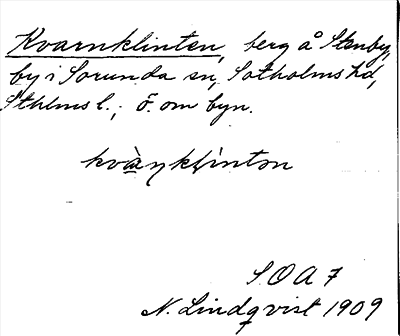 Kvarnklinten, berg å Stenby,
by i Sorunda sn, Sotholms hd,
Sthlms l., ö. om byn.
kvàŋkḷìntən
S.O.A 7
N. Lindqvist 1909